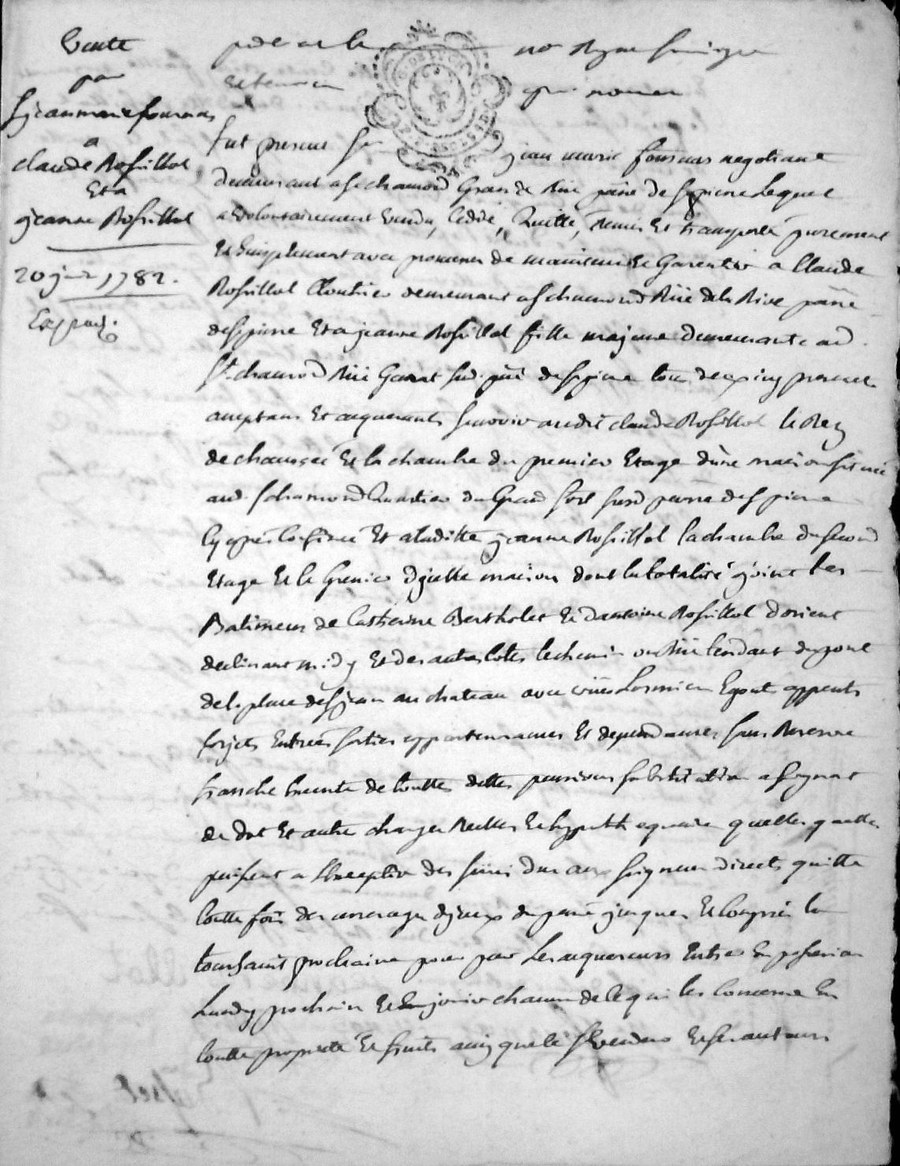 Vente
par
Sr jean marie fournas
a
claude Rossillol
Et a
jeanne Rossillol
20 1782.
Exped.
par de la no Royau
Et qui
fut present Sr jean marie fournas negotiant
demeurant a St chamond Grande Rüe pårre de St pierre Lequel
a volontairement vendu, Ceddé, Quitté, Remis Et transporté purement
Et Simplement avec promesse de maintenir Et Garentir a Claude
Rossillol Cloutier demeurant a St chamond Rüe de la Rive parre
de St pierre Et a jeanne Rossillol fille majeure demeurante aud.
St. chamond Rüe susd. parre de St pierre tous deux icy present
acceptans Et acquerants scavoir aud. Claude Rossillol le Rez
de chaussée Et la chambre du premier Etage d'une maison située
aud. St chamond Quartier du Grand susd parre de St pierre
cy après Confinée Et a laditte jeanne Rossillol la chambre du second
Etage Et le Grenier d'ycelle maison dont la totalité joint les
Batimens de Catherine Bertholet Et d'antoine Rossillol d'orient
declinant midy Et des autres Cotés le chemin ou Rüe tendant du pont
de la place de St jean au chateau avec Egout appents
forjets Entrées sorties appartenances Et dependances sans Reserve
franche Exempte de touttes dettes pensions substitution assignat
de dot Et autre charges Reelles Et hypothequaires quelles quelles
puissent a l'Exception des Servis dus aux Seigneur directs quitte
toutte fois des arrerages d'yceux du passé jusques Et compris la
toussaint prochaine pour par les acquereurs Entrer En possession
Lundy prochain Et En jouir chacun de ce qui les concerne En
toutte proprieté Et fruits ainsy que le Sr vendeur Et ses auteurs